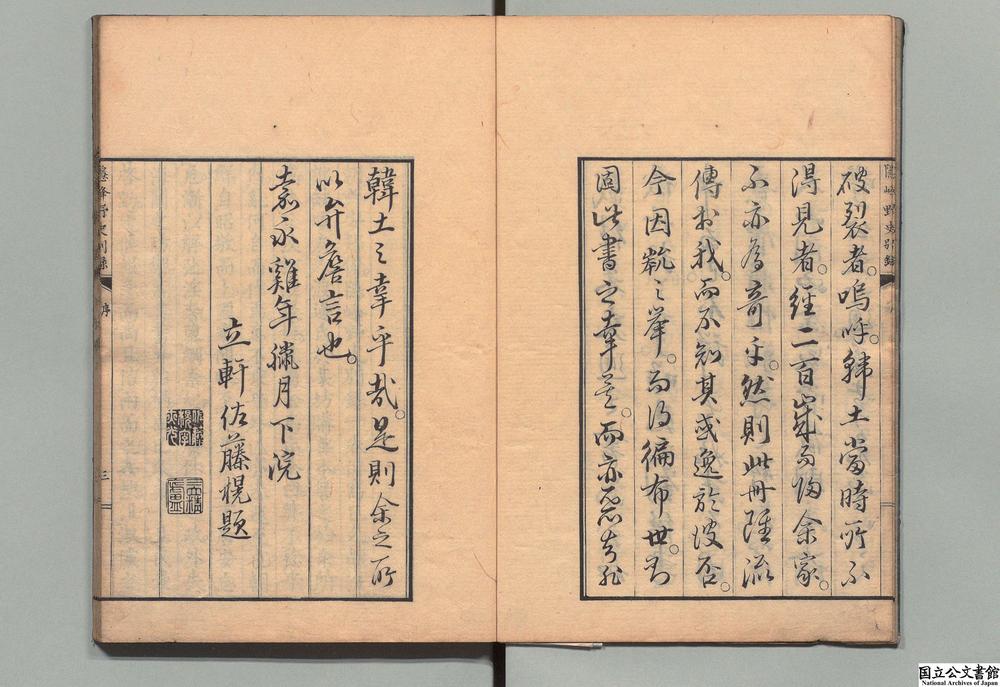 隱峰野史別錄
破裂者。嗚呼。韓土當時所不
得見者。經二百歲而歸余家。
不亦為奇乎。然則此冊雖流
傳於我。而不知其或逸於彼否。
今因之舉。而得徧布世。則
固此書之幸矣。而亦惡知非
韓土之幸乎哉。是則余之所
以弁詹言也。
嘉永雞年臘月下浣
立軒佐藤榥題
隱峰野史別錄 序 三
国立公文書館
National Archives of Japan